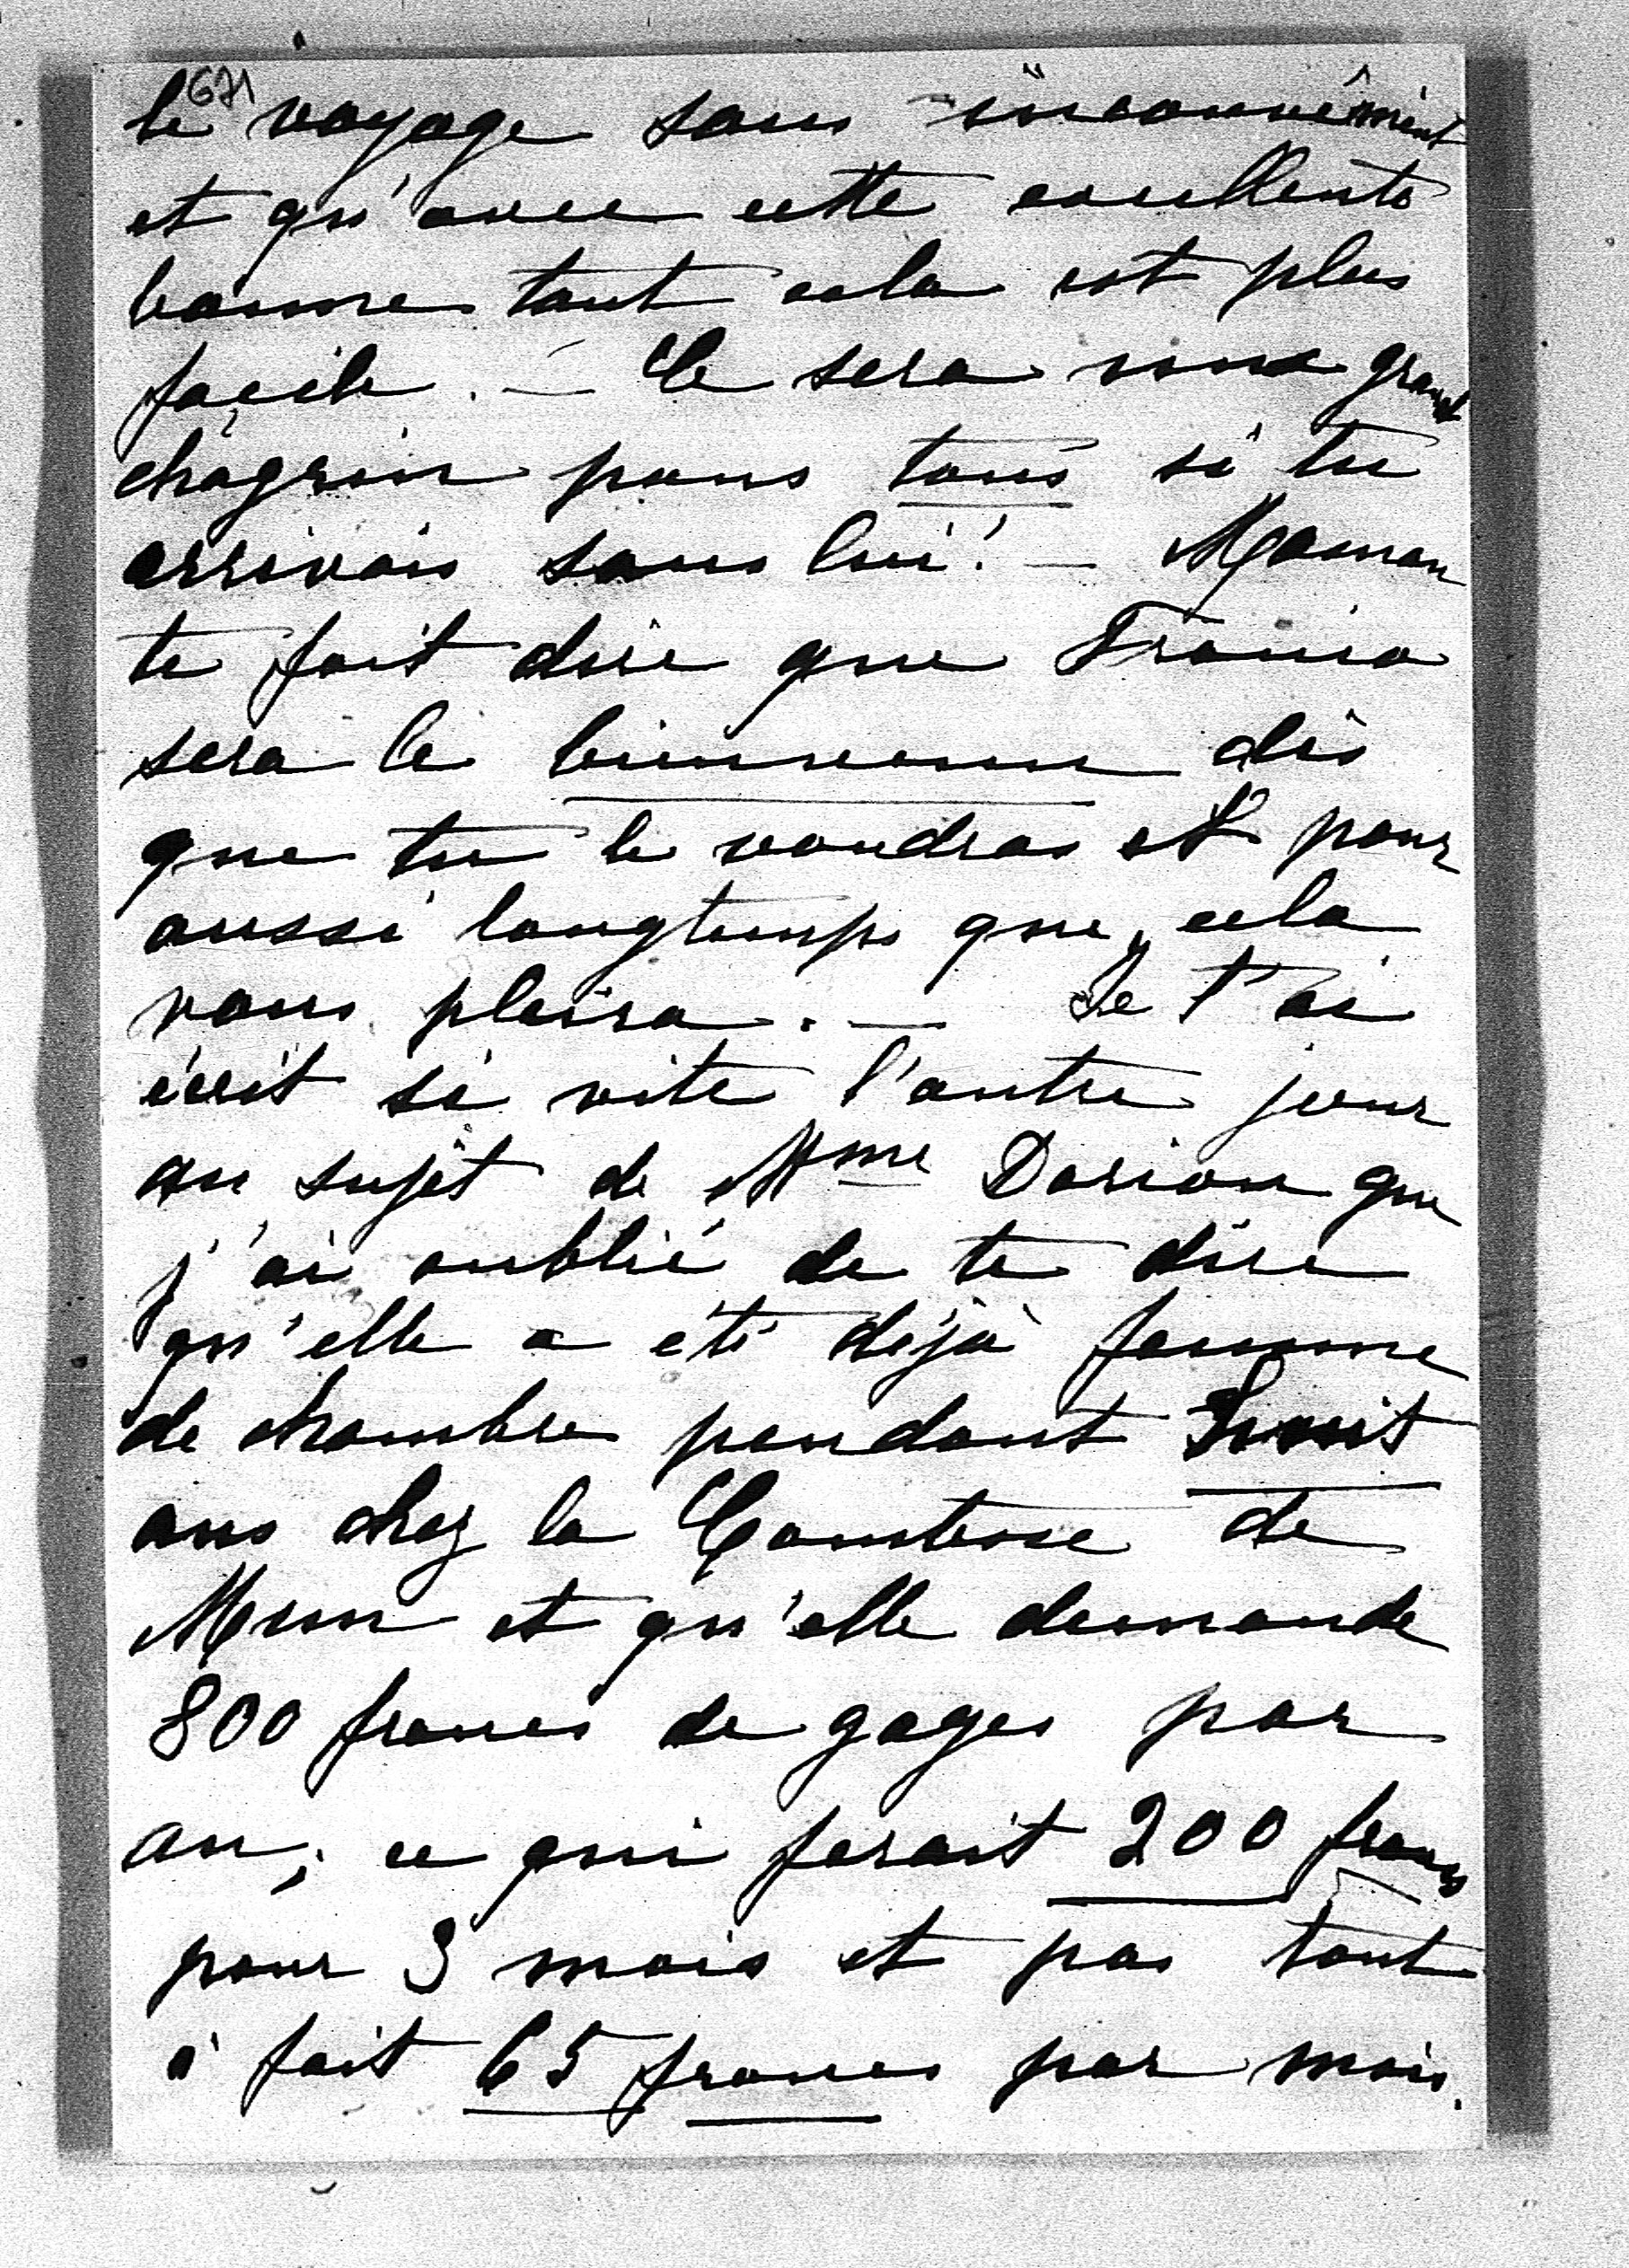 671
le voyage sans inconvénient
et qu'avec cette excellente
bonne tout cela est plus
facile. — Ce sera un grand
chagrin pour tous si tu
arrivais sans lui! — Maman
te fait dire que
sera le bienvenu dès
que tu le voudras et pour
aussi longtemps que cela
vous plaira. — Je t'ai
écrit si vite l'autre jour
au sujet de Mme Dorion que
j'ai oublié de te dire
qu'elle a été déjà femme
de chambre pendant huit
ans chez la Comtesse de
Mun et qu'elle demande
800 francs de gages par
an, ce qui ferait 200 francs
pour 3 mois et pas tout
à fait 65 francs par mois.